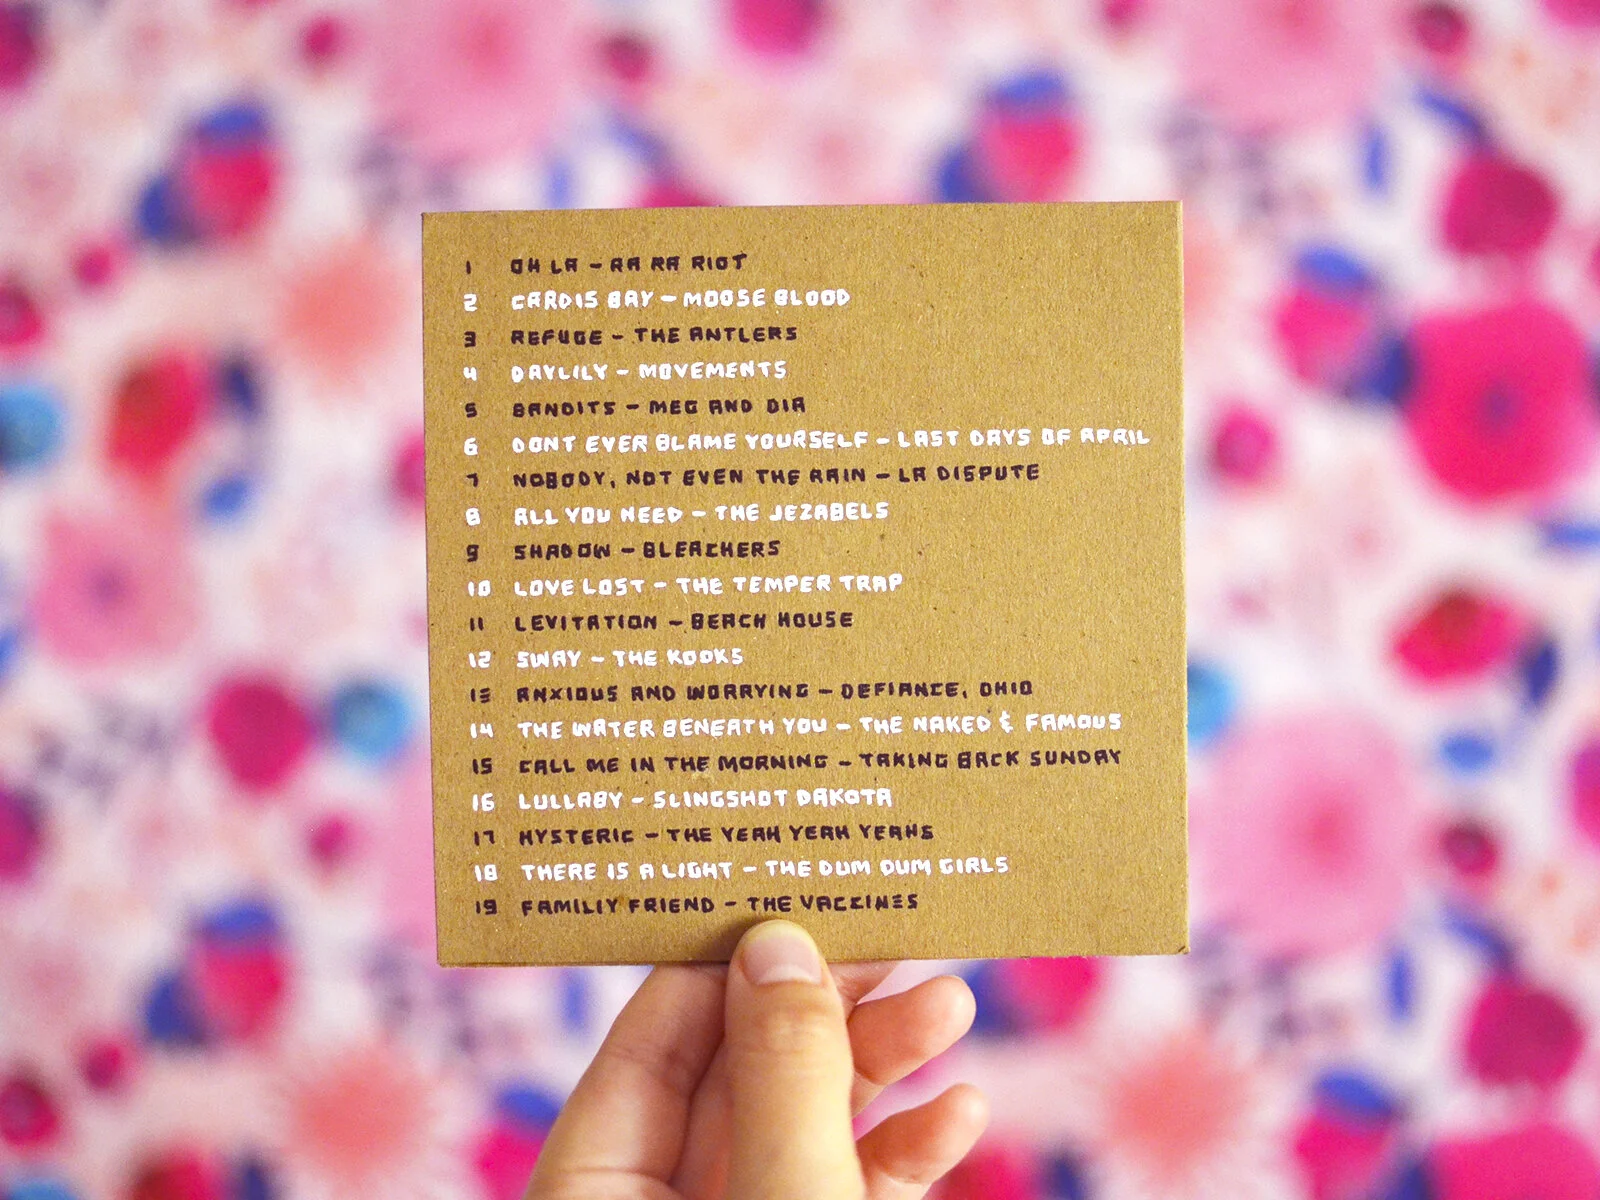 1 OH LA - RA RA RIOT
2 CARDIS BAY - MOOSE BLOOD
3 REFUGE - THE ANTLERS
4 DAYLILY - MOVEMENTS
5 BANDITS - MEG AND DIA
6 DONT EVER BLAME YOURSELF - LAST DAYS OF APRIL
7 NOBODY, NOT EVEN THE RAIN - LA DISPUTE
8 ALL YOU NEED - THE JEZABELS
9 SHADOW - BLEACHERS
10 LOVE LOST - THE TEMPER TRAP
11 LEVITATION - BEACH HOUSE
12 SWAY - THE KOOKS
13 ANXIOUS AND WORRYING - DEFIANCE, OHIO
14 THE WATER BENEATH YOU - THE NAKED & FAMOUS
15 CALL ME IN THE MORNING - TAKING BACK SUNDAY
16 LULLABY - SLINGSHOT DAKOTA
17 HYSTERIC - THE YEAH YEAH YEAHS
18 THERE IS A LIGHT - THE DUM DUM GIRLS
19 FAMILIY FRIEND - THE VACCINES